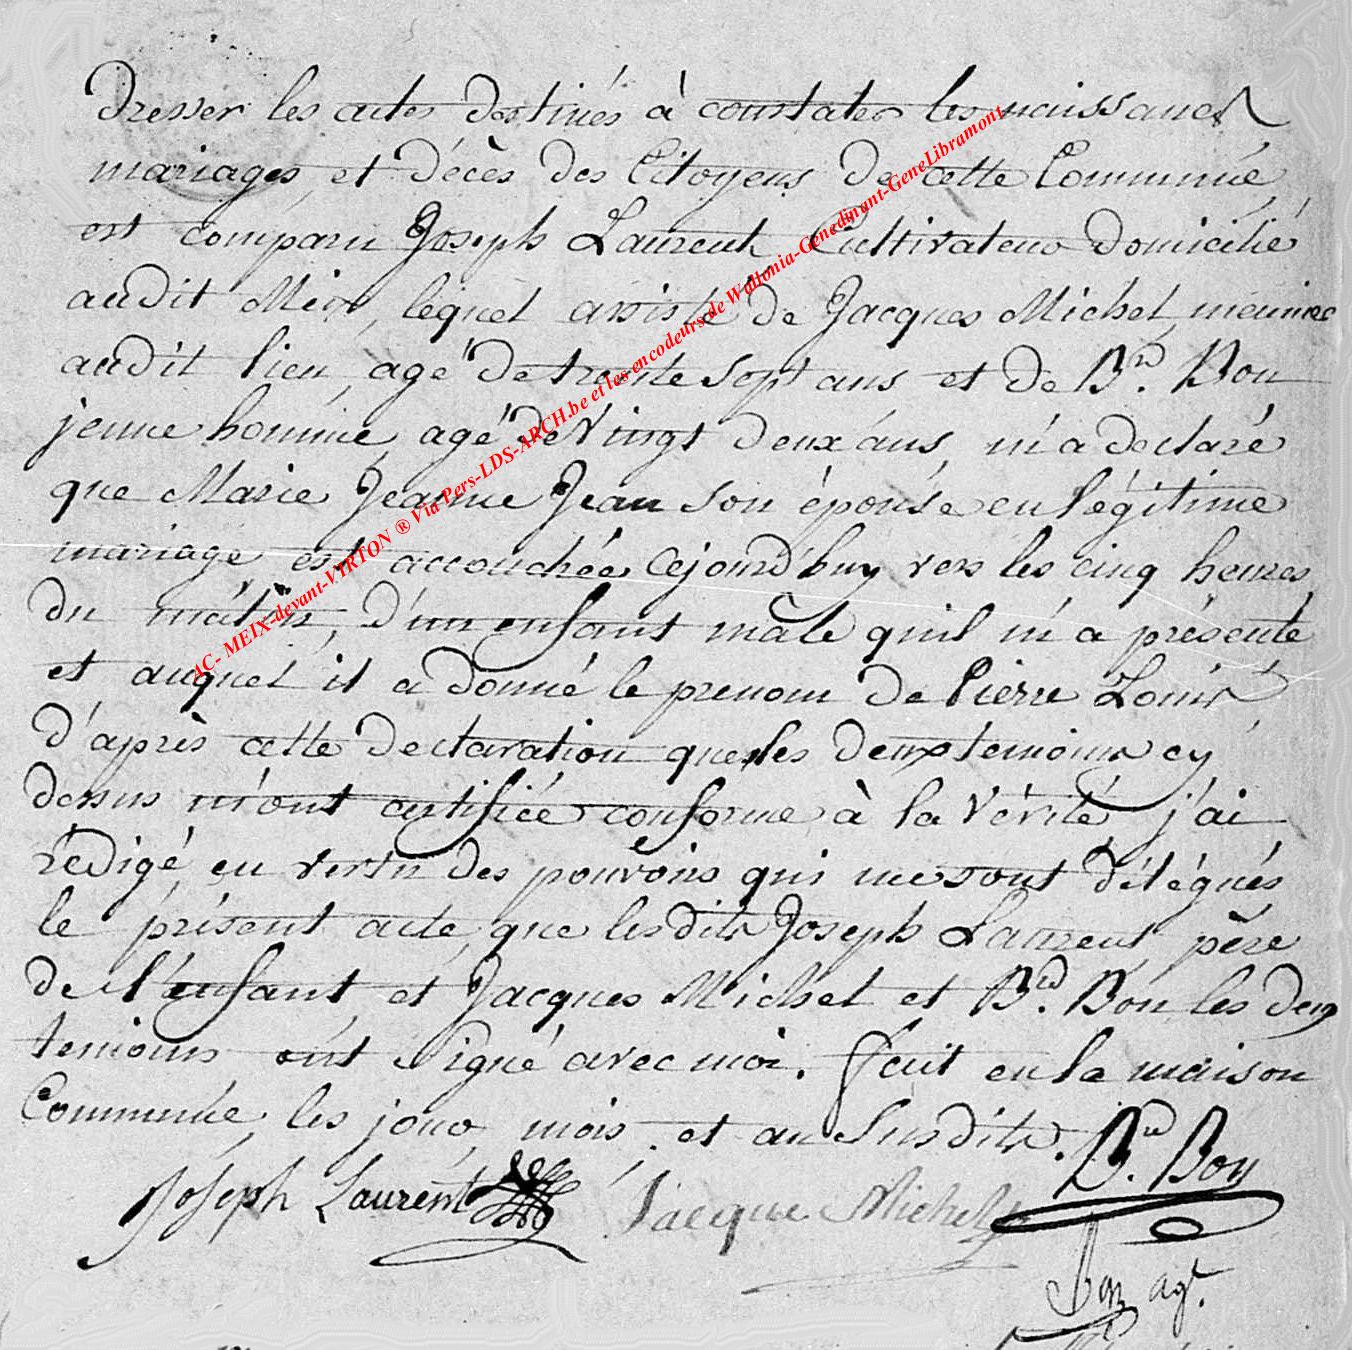 Dresser les actes destinés à constater les naissances
mariages et décès des Citoyens de cette Commune
est comparu Joseph Laurent Cultivateur domicilié
audit Meix, lequel assisté de Jacques Michel, meunier
audit lieu agé de trente sept ans et de B.rd Bon
jeune homme agé de Vingt deux ans, m'a declaré
que Marie Jeanne Jean son épouse en légitime
mariage est accouchée cejourd'huy vers les cinq heures
du matin, d'un enfant mâle quil m'a présenté
et auquel il a donné le prenom de Pierre Louis
d'après cette declaration que les deux temoins cy
dessus m'ont certifiée conforme à la Vérité j'ai
rédigé en vertu des pouvoirs qui me sont délégués
le présent acte, que lesdits Joseph Laurent père
de l'enfant, et Jacques Michel et B.rd Bon les deux
temoins ont signé avec moi. fait en la maison
Commune les jour, mois, et an susdits. B.rd Bon
Joseph Laurent Jacque Michel
agt.
AC- MEIX-devant-VIRTON ® Via Pers-LDS-ARCH.be et les encodeurs de Wallonia-Genedinant-GeneLibramont